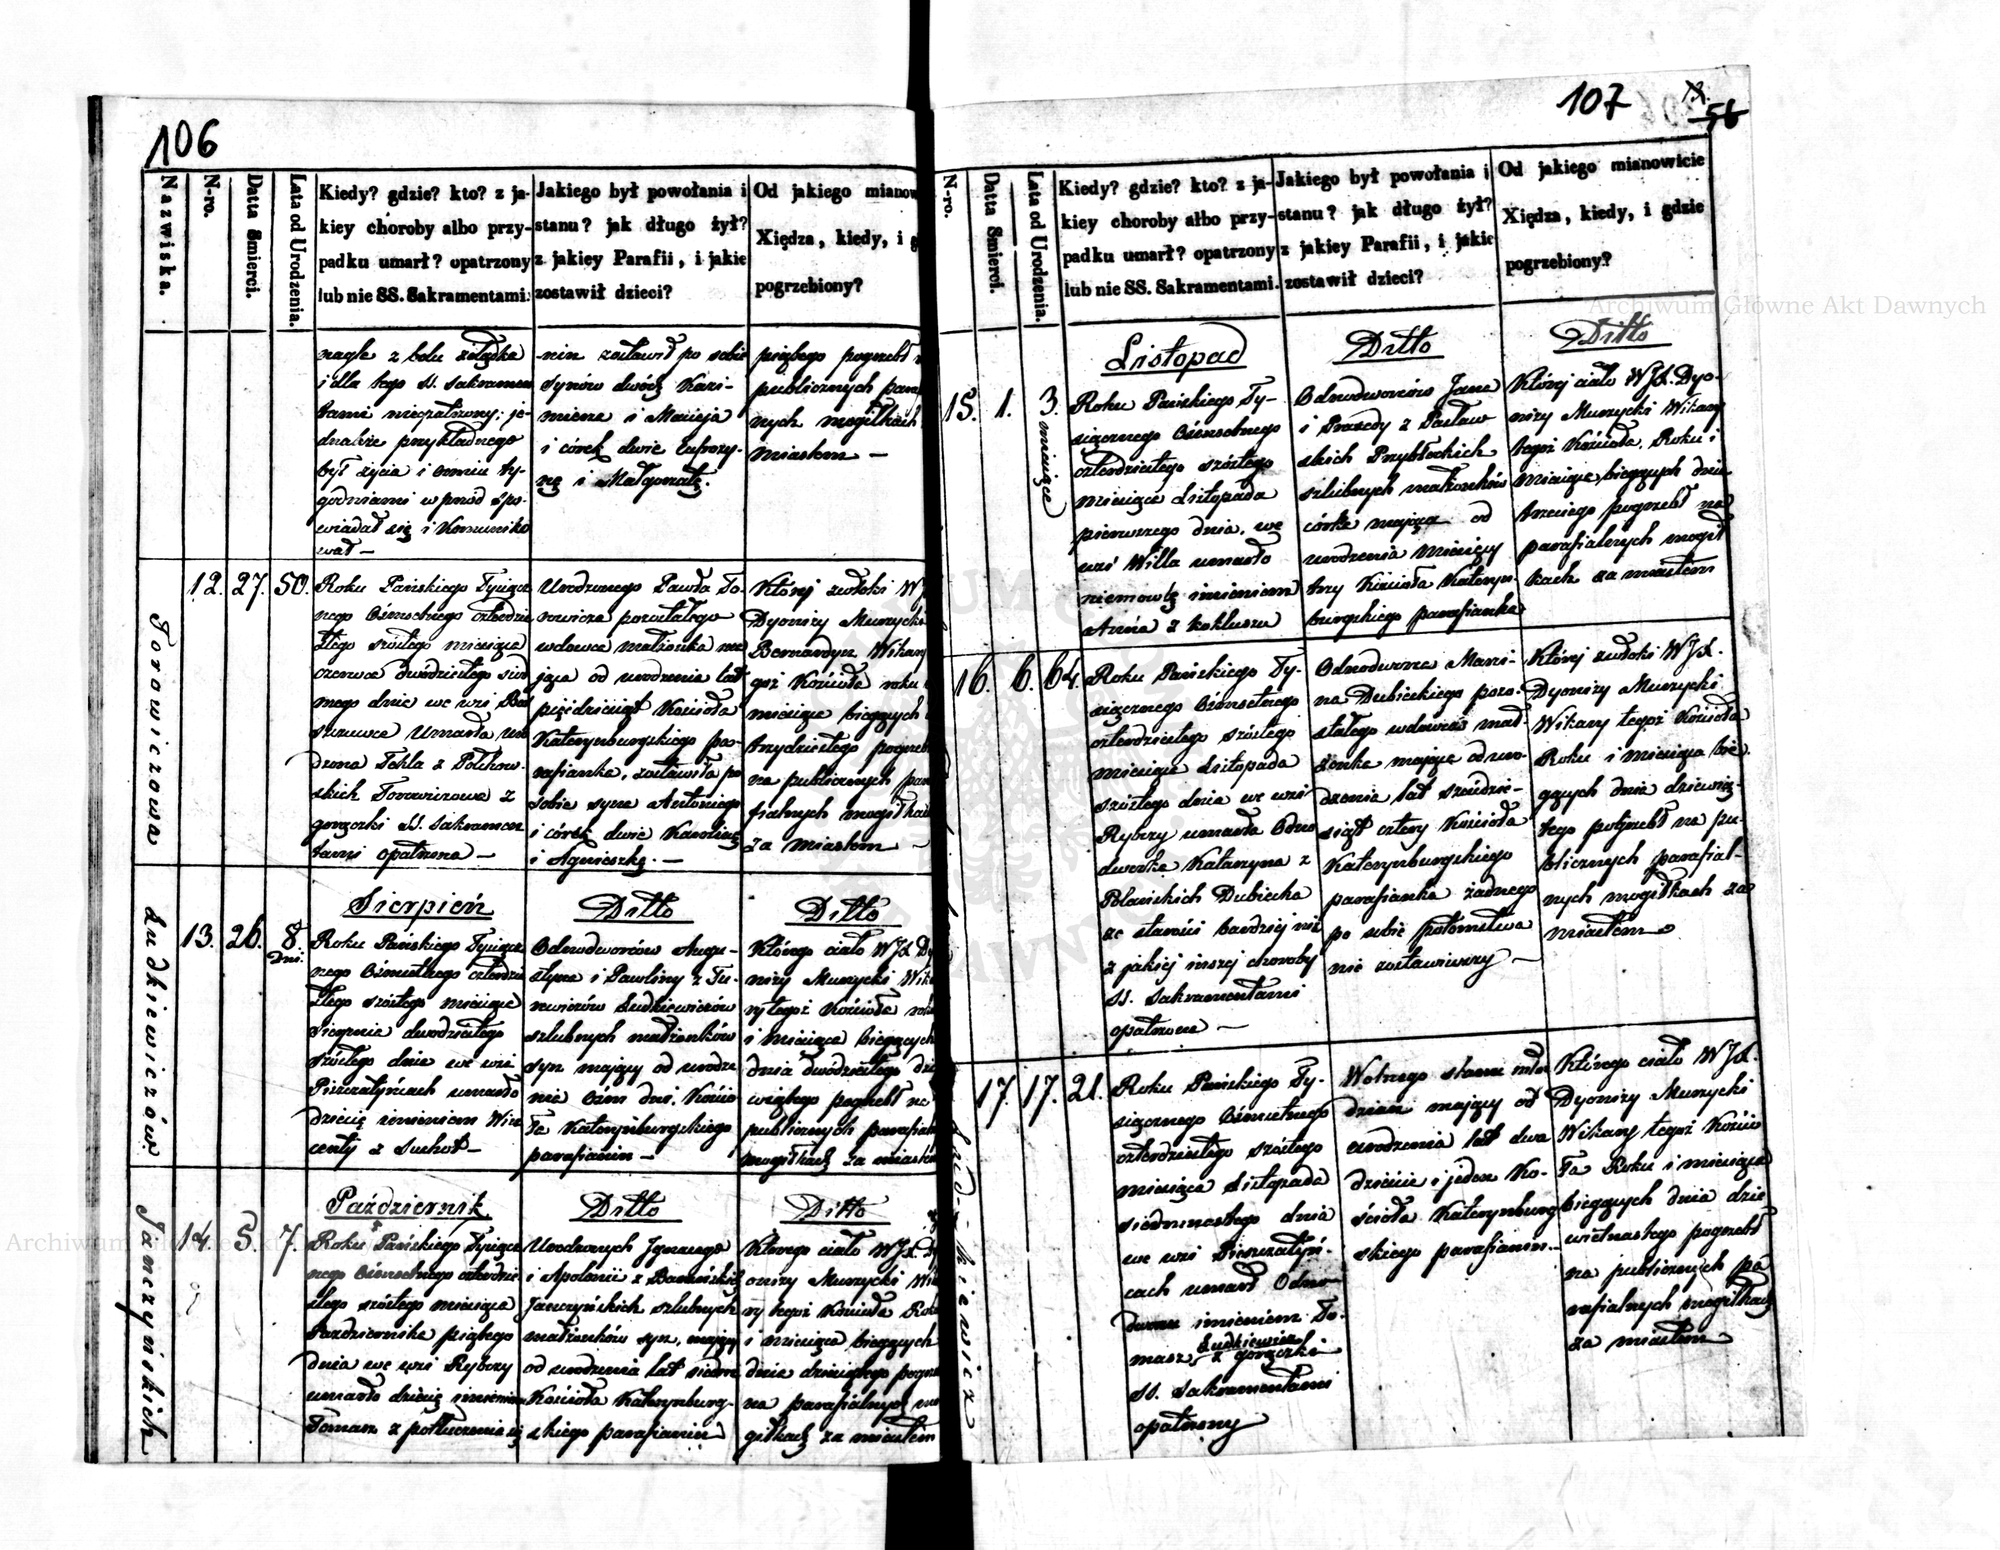 106
Nazwiska.
N-ro.
Datta Smierci.
Lata od Urodzenia.
Kiedy? gdzie? kto? z ja-
kiey choroby albo przy-
padku umarł? opatrzony
lub nie SS. Sakramentami.
Jakiego był powołania i
stanu? jak długo żył?
z jakiey Parafii, i jakie
zostawił dzieci?
Od jakiego mianow
Xiędza, kiedy, i g
pogrzebiony?
nagle z bolu żołądka
i dla tego ss. sakramen
tami nieopatrzony; je-
dnakże przykładnego
był życia i ośmiu ty-
godniami wprzód spo-
wiadał się i kommuniko
wał —
nin zostawił po sobie
synów dwóch Kazi-
mierza i Macieja
i córek dwie Eufrozy-
nę i Małgorzatę.
piątego pogrzebł
publicznych para
nych mogiłkach
miastem —
Torowiczowa
12. 27. 50.
Roku Pańskiego Tysiącz
nego Ośmsetnego czterdzie
stego szóstego miesiąca
czerwca dwódziestego siód
mego dnia we wsi
umarła uro
dzona Tekla z
skich Torowiczowa z
gorączki ss. sakramen
tami opatrzona —
Urodzonego Pawła To-
rowicza pozostałego
wdowca małżonka ma
jąca od urodzenia lat
pięćdziesiąt Kościoła
Katerynburgskiego pa-
rafianka, zostawiła po
sobie syna Antoniego
i córek dwie Karolinę
i Agnieszkę. —
Której zwłoki W
Dyonizy Murzycki
Bernardyn Wikary
goż Kościoła roku
miesiąca bieżących
trzydziestego pogrzeb
na publicznych para
fialnych mogiłkach
za miastem —
Ludkiewiczów
Sierpień
Ditto
Ditto
13. 26. 8.
dni.
Roku Pańskiego Tysiącz
nego Ośmsetnego czterdzie
stego szóstego miesiąca
Sierpnia dwudziestego
szóstego dnia we wsi
Pieszczatyńcach umarło
dziecię imieniem Win
centy z Suchot —
Odnodworców Augu-
styna i Pawliny z
Ludkiewiczów
szlubnych małżonków
syn mający od urodze
nia ośm dni. Kościo
ła Katerynburgskiego
parafianin —
Którego ciało WJX Dy
nizy Murzycki Wika
ry tegoż Kościoła roku
i miesiąca bieżących
dnia dwódziestego dzie
wiątego pogrzebł na
publicznych parafial
mogiłkach za miastem
Janczyńskich
Październik
Ditto
Ditto
14. 5. 7.
Roku Pańskiego Tysiącz
nego Ośmsetnego czterdzie
stego szóstego miesiąca
Października piątego
dnia we wsi Rybczy
umarło dziecię imieniem
Tomasz z potłuczenia się
Urodzonych Ignacego
i Apolonii z
Janczyńskich szlubnych
małżonków syn, mający
od urodzenia lat siedm
Kościoła Katerynburg-
skiego parafianin
Którego ciało WJX. Dy
onizy Murzycki Wika
ry tegoż Kościoła Roku
i miesiąca bieżących
dnia dziewiątego pogrze
na parafialnych mo
giłkach za miastem
107
56
N-ro.
Datta Smierci.
Lata od Urodzenia.
Kiedy? gdzie? kto? z ja-
kiey choroby albo przy-
padku umarł? opatrzony
lub nie SS. Sakramentami.
Jakiego był powołania i
stanu? jak długo żył?
z jakiey Parafii, i jakie
zostawił dzieci?
Od jakiego mianowicie
Xiędza, kiedy, i gdzie
pogrzebiony?
Listopad
Ditto
Ditto
15. 1. 3.
miesiące
Roku Pańskiego Ty-
siącznego Ośmsetnego
czterdziestego szóstego
miesiąca Listopada
pierwszego dnia, we
wsi Willa umarło
niemowlę imieniem
Anna z kokluszu
Odnodworców Jana
i Praxedy z Pasław
skich Przybłockich
szlubnych małżonków
córka mająca od
urodzenia miesięcy
trzy Kościoła Kateryn-
burgskiego parafianka
Której ciało WJX. Dyo-
nizy Murzycki Wikary
tegoż Kościoła, Roku i
miesiąca bieżących dnia
trzeciego pogrzebł na
parafialnych mogił
kach za miastem
16. 6. 64.
Roku Pańskiego Ty-
siącznego Ośmsetnego
czterdziestego szóstego
miesiąca Listopada
szóstego dnia we wsi
Rybczy umarła Odno
dworka Katarzyna z
Polańskich Dubicka
ze starości bardziej niż
z jakiej inszej choroby
ss. sakramentami
opatrzona —
Odnodworca Marci-
na Dubickiego pozo-
stałego wdowca mał-
żonka mająca od uro-
dzenia lat sześćdzie-
siąt cztery Kościoła
Katerynburgskiego
parafianka żadnego
po sobie potomstwa
nie zostawiwszy —
Której zwłoki WJX.
Dyonizy Murzycki
Wikary tegoż Kościoła
Roku i miesiąca bie-
żących dnia dziewią-
tego pogrzebł na pu-
blicznych parafial-
nych mogiłkach za
miastem
17. 17. 21.
Roku Pańskiego Ty-
siącznego Ośmsetnego
czterdziestego szóstego
miesiąca Listopada
siedmnastego dnia
we wsi Pieszczatyń-
cach umarł Odno
dworzec imieniem To-
masz Ludkiewicz
z gorączki
ss. sakramentami
opatrzony
Wolnego stanu mło
dzian mający od
urodzenia lat dwa
dzieście i jeden Ko-
ścioła Katerynburg
skiego parafianin —
Którego ciało WJX.
Dyonizy Murzycki
Wikary tegoż Kościo
ła Roku i miesiąca
bieżących dnia dzie
wietnastego pogrzebł
na publicznych pa
rafialnych mogiłkach
za miastem
Archiwum Główne Akt Dawnych